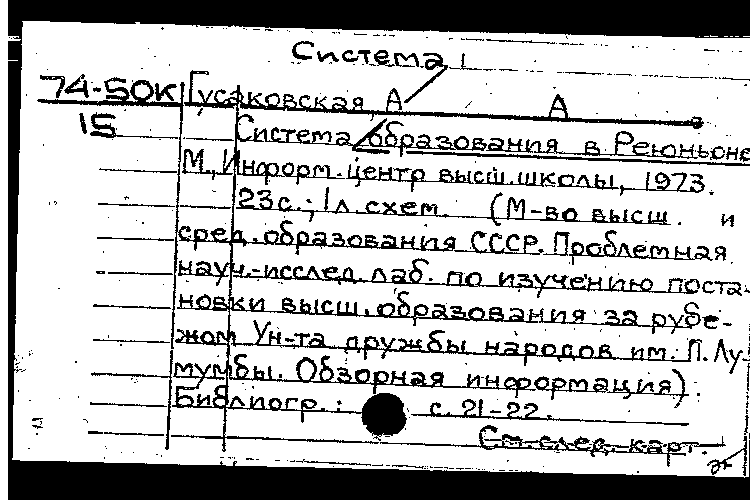 Система
74-50К Гусаковская А А
15 Система образования в Реюньоне
М., Информ. центр высш. школы, 1973.
23с.; 1л. схем. (М-во высш. и
сред. образования СССР. Проблемная
науч.-исслед. лаб. по изучению поста-
новки высш. образования за рубе-
жом Ун-та дружбы народов им. П. Лу-
мумбы. Обзорная информация).
Библиогр.: с. 21-22.
См. след. карт.